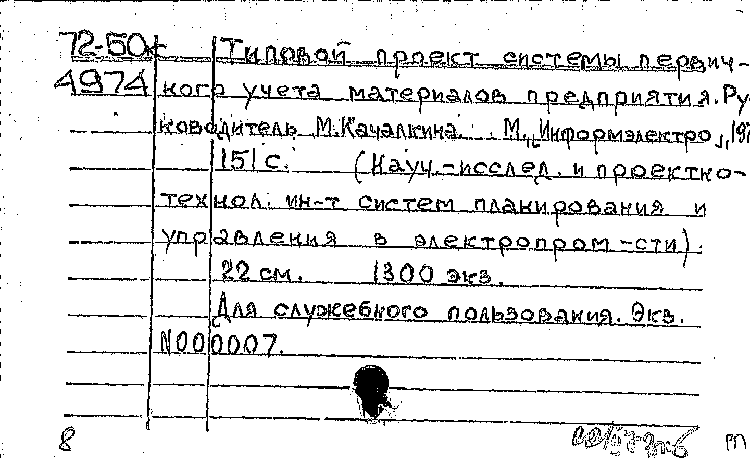 72-50к Типовой проект системы первич-
4974 ного учета материалов предприятия. Ру-
ководитель М.Качалкина. М., "Информэлектро",
151 с. (Науч.-исслед. и проектно-
технол. ин-т систем планирования и
управления в электропром-сти).
22 см. 1300 экз.
Для служебного пользования. Экз.
N000007.
8